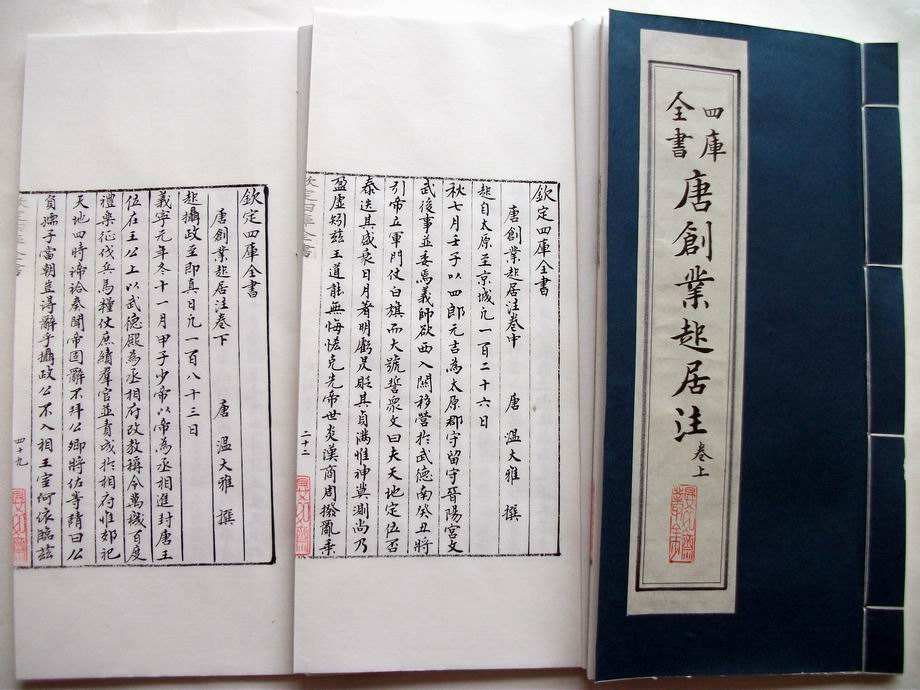 四庫
全書
唐創業起居注
卷上
欽定四庫全書
唐創業起居注卷中
唐 溫大雅 撰
起自太原至京城凡一百二十六日
秋七月壬子以四郎元吉為太原郡守留守晉陽宮文
武後事並委焉義師欲西入關移營於武德南癸丑將
引帝立軍門仗白旗而大號誓眾文曰夫天地定位否
泰迭其盛衰日月著明虧昃貶其貞滿惟神莫測尚乃
盈虛矧茲王道能無悔恡克先帝世炎漢商周撥亂乘
二十二
欽定四庫全書
唐創業起居注卷下
唐 溫大雅 撰
起攝政至即真日凡一百八十三日
義寧元年冬十一月甲子少帝以帝為丞相進封唐王
位在王公上以武德殿為丞相府改教稱令萬機百度
禮樂征伐兵馬糧仗庶績群官並責成於相府惟郊祀
天地四時禘祫奏聞帝固辭不拜公卿將佐等請曰公
負孺子當朝豈得辭乎攝政公不入相王室何依臨茲
四十九